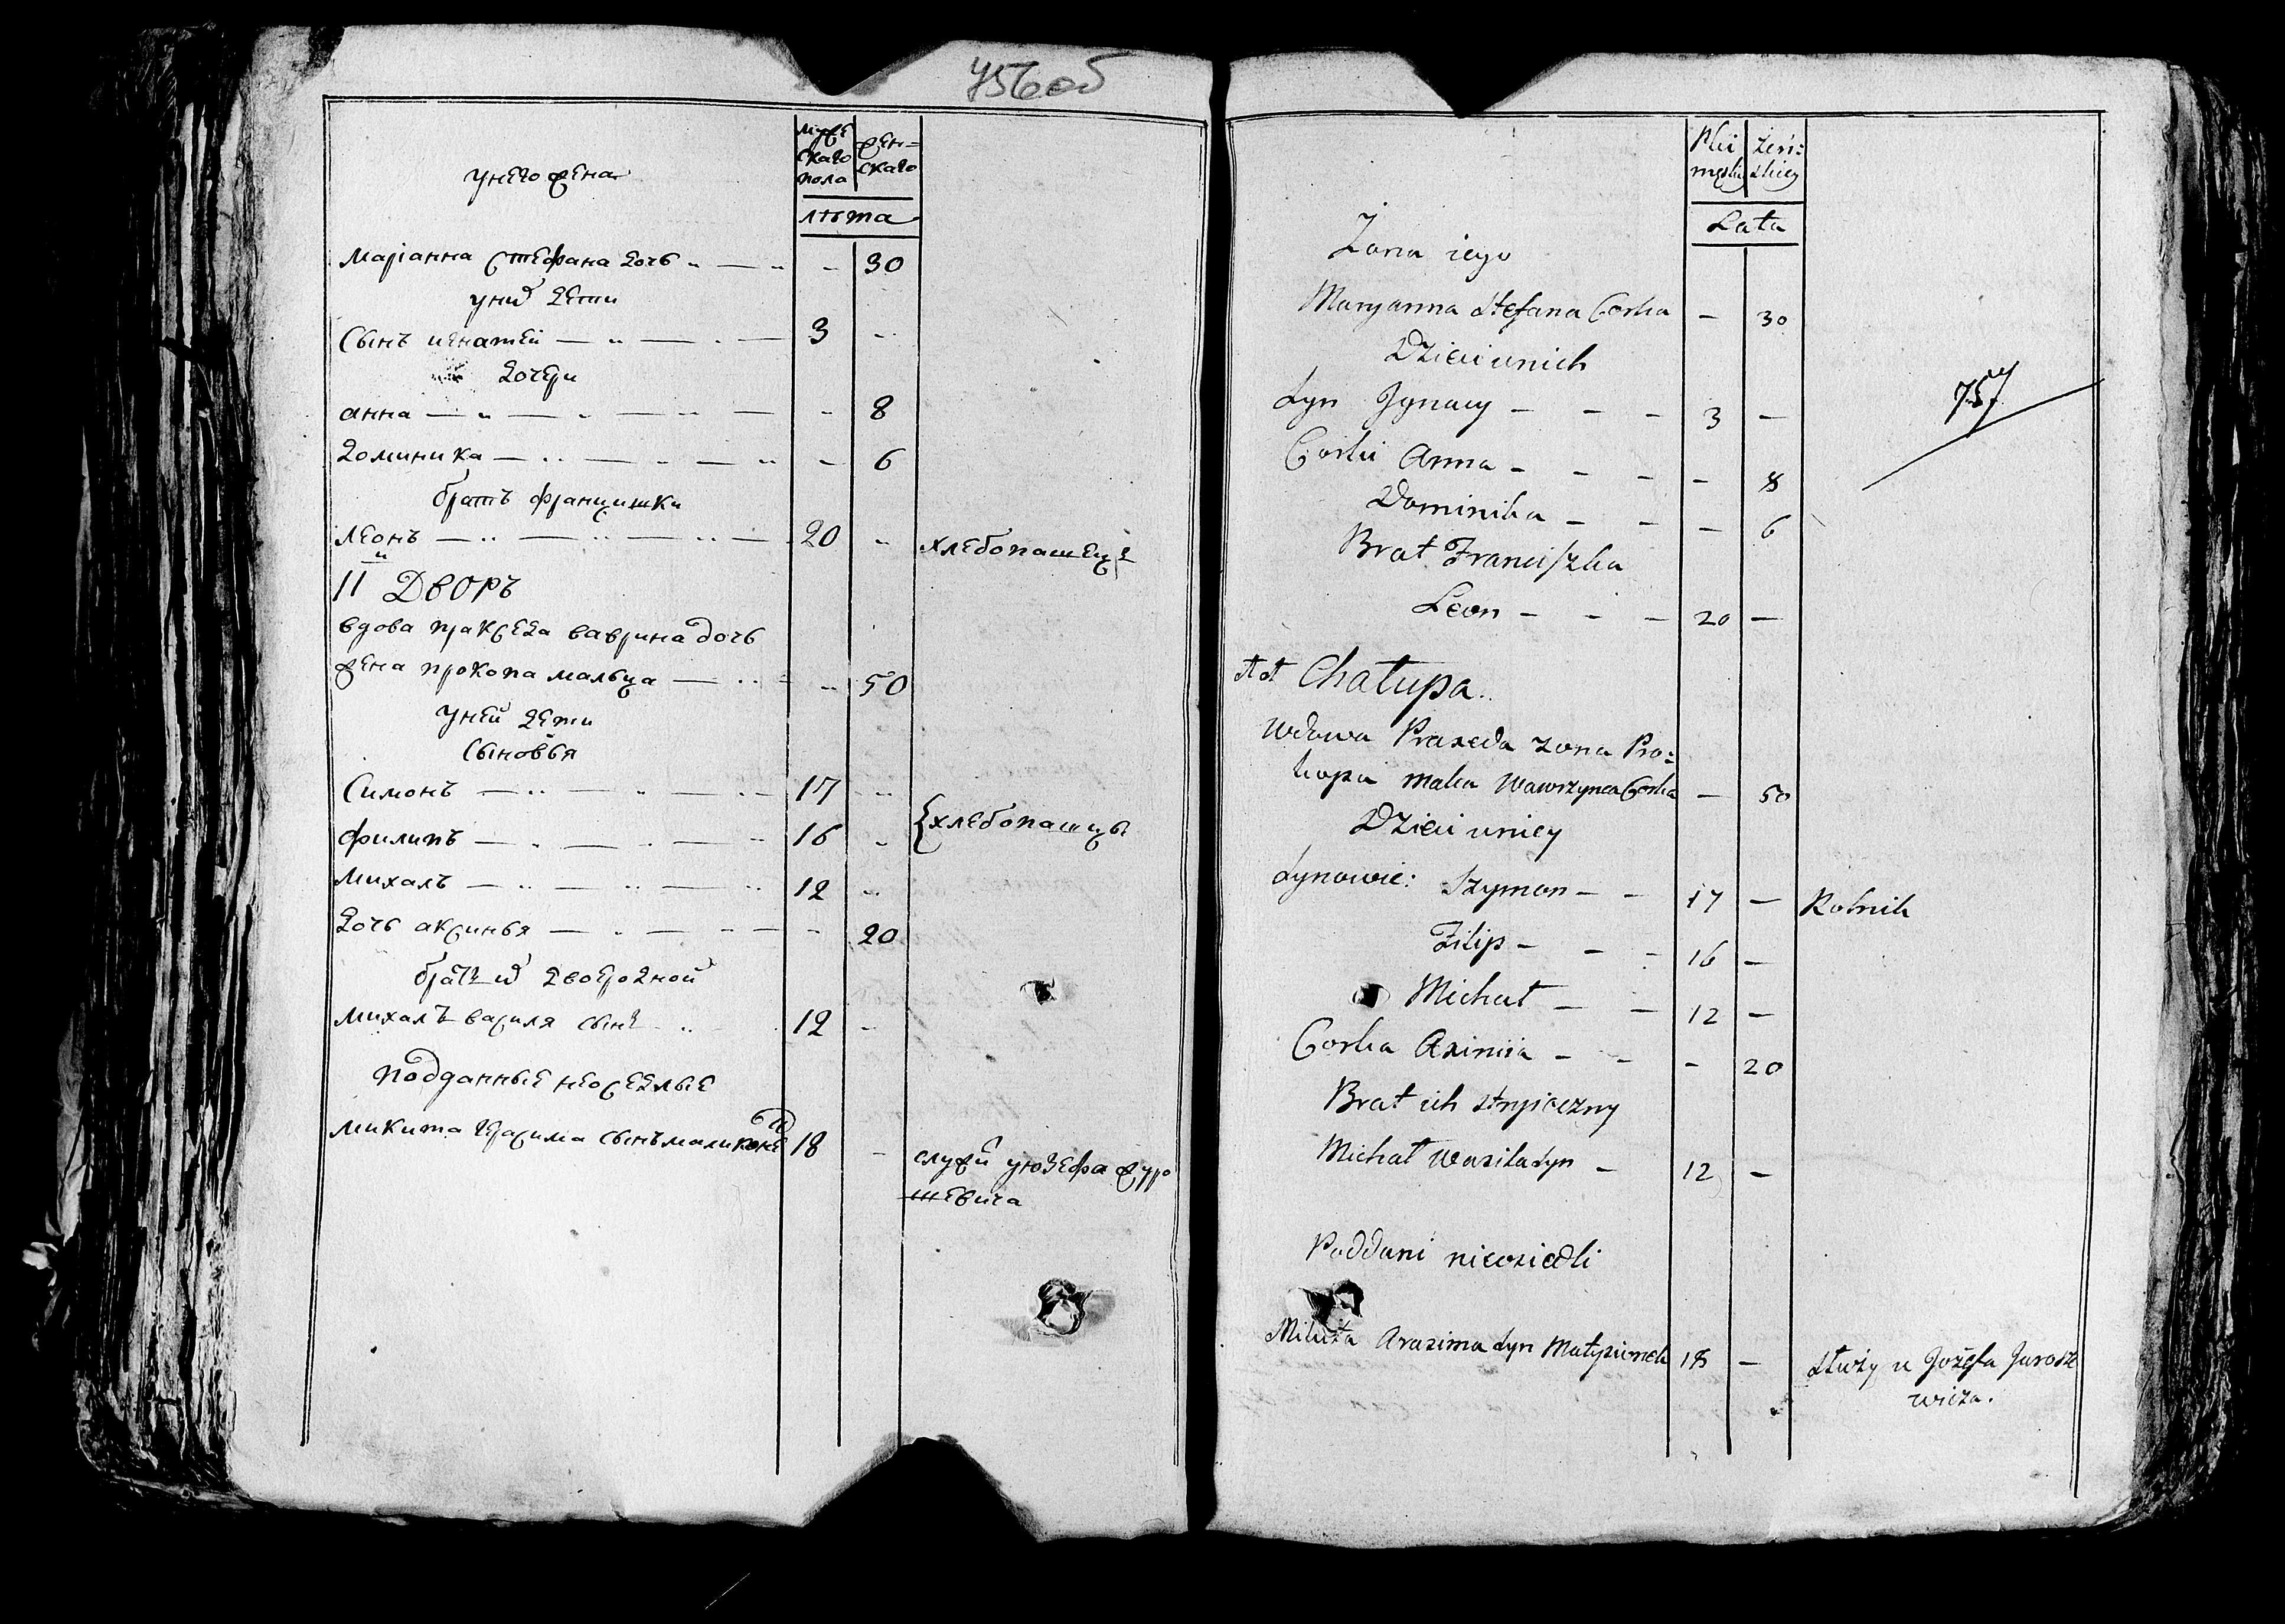 756об
мужескаго пола
женскаго
лѣта
у него жена
маріанна стефана дочь 30
у них дѣти
сынъ игнатей 3
дочери
анна 8
доминика 6
братъ францишки
леонъ 20 хлебопашецъ
11й Дворъ
вдова пракседа ваврина дочь
жена прокопа мальца 50
у ней дети
сыновья
Симонъ 17
филипъ 16 хлебопашцы
михалъ 12
дочь аксинья 20
братъ их двоюродной
михалъ василя сынъ 12
подданные неоселые
микита герасима сынъ 18 служи у юзефа журо
шевича
Plci męskiey
Żeńskiey
Lata
Żona iego
Maryanna Stefana Corka — 30
Dzieci u nich
Syn Jgnacy 3 —
Corki Anna — 8
Dominika — 6
Brat Franciszka
Leon 20 —
757
11 Chałupa.
Wdowa Praxeda żona Pro=
kopa Malca Wawrzynca Corka — 50
Dzieci u niey
Synowie: Szymon 17 — Rolnik
Filip 16 —
Michał 12 —
Corka Axinia — 20
Brat ich stryieczny
Michał Wasila Syn 12 —
Poddani nieosiedli
Mikita Arasima Syn 18 — Służy u Jozefa Jurosze
wicza.